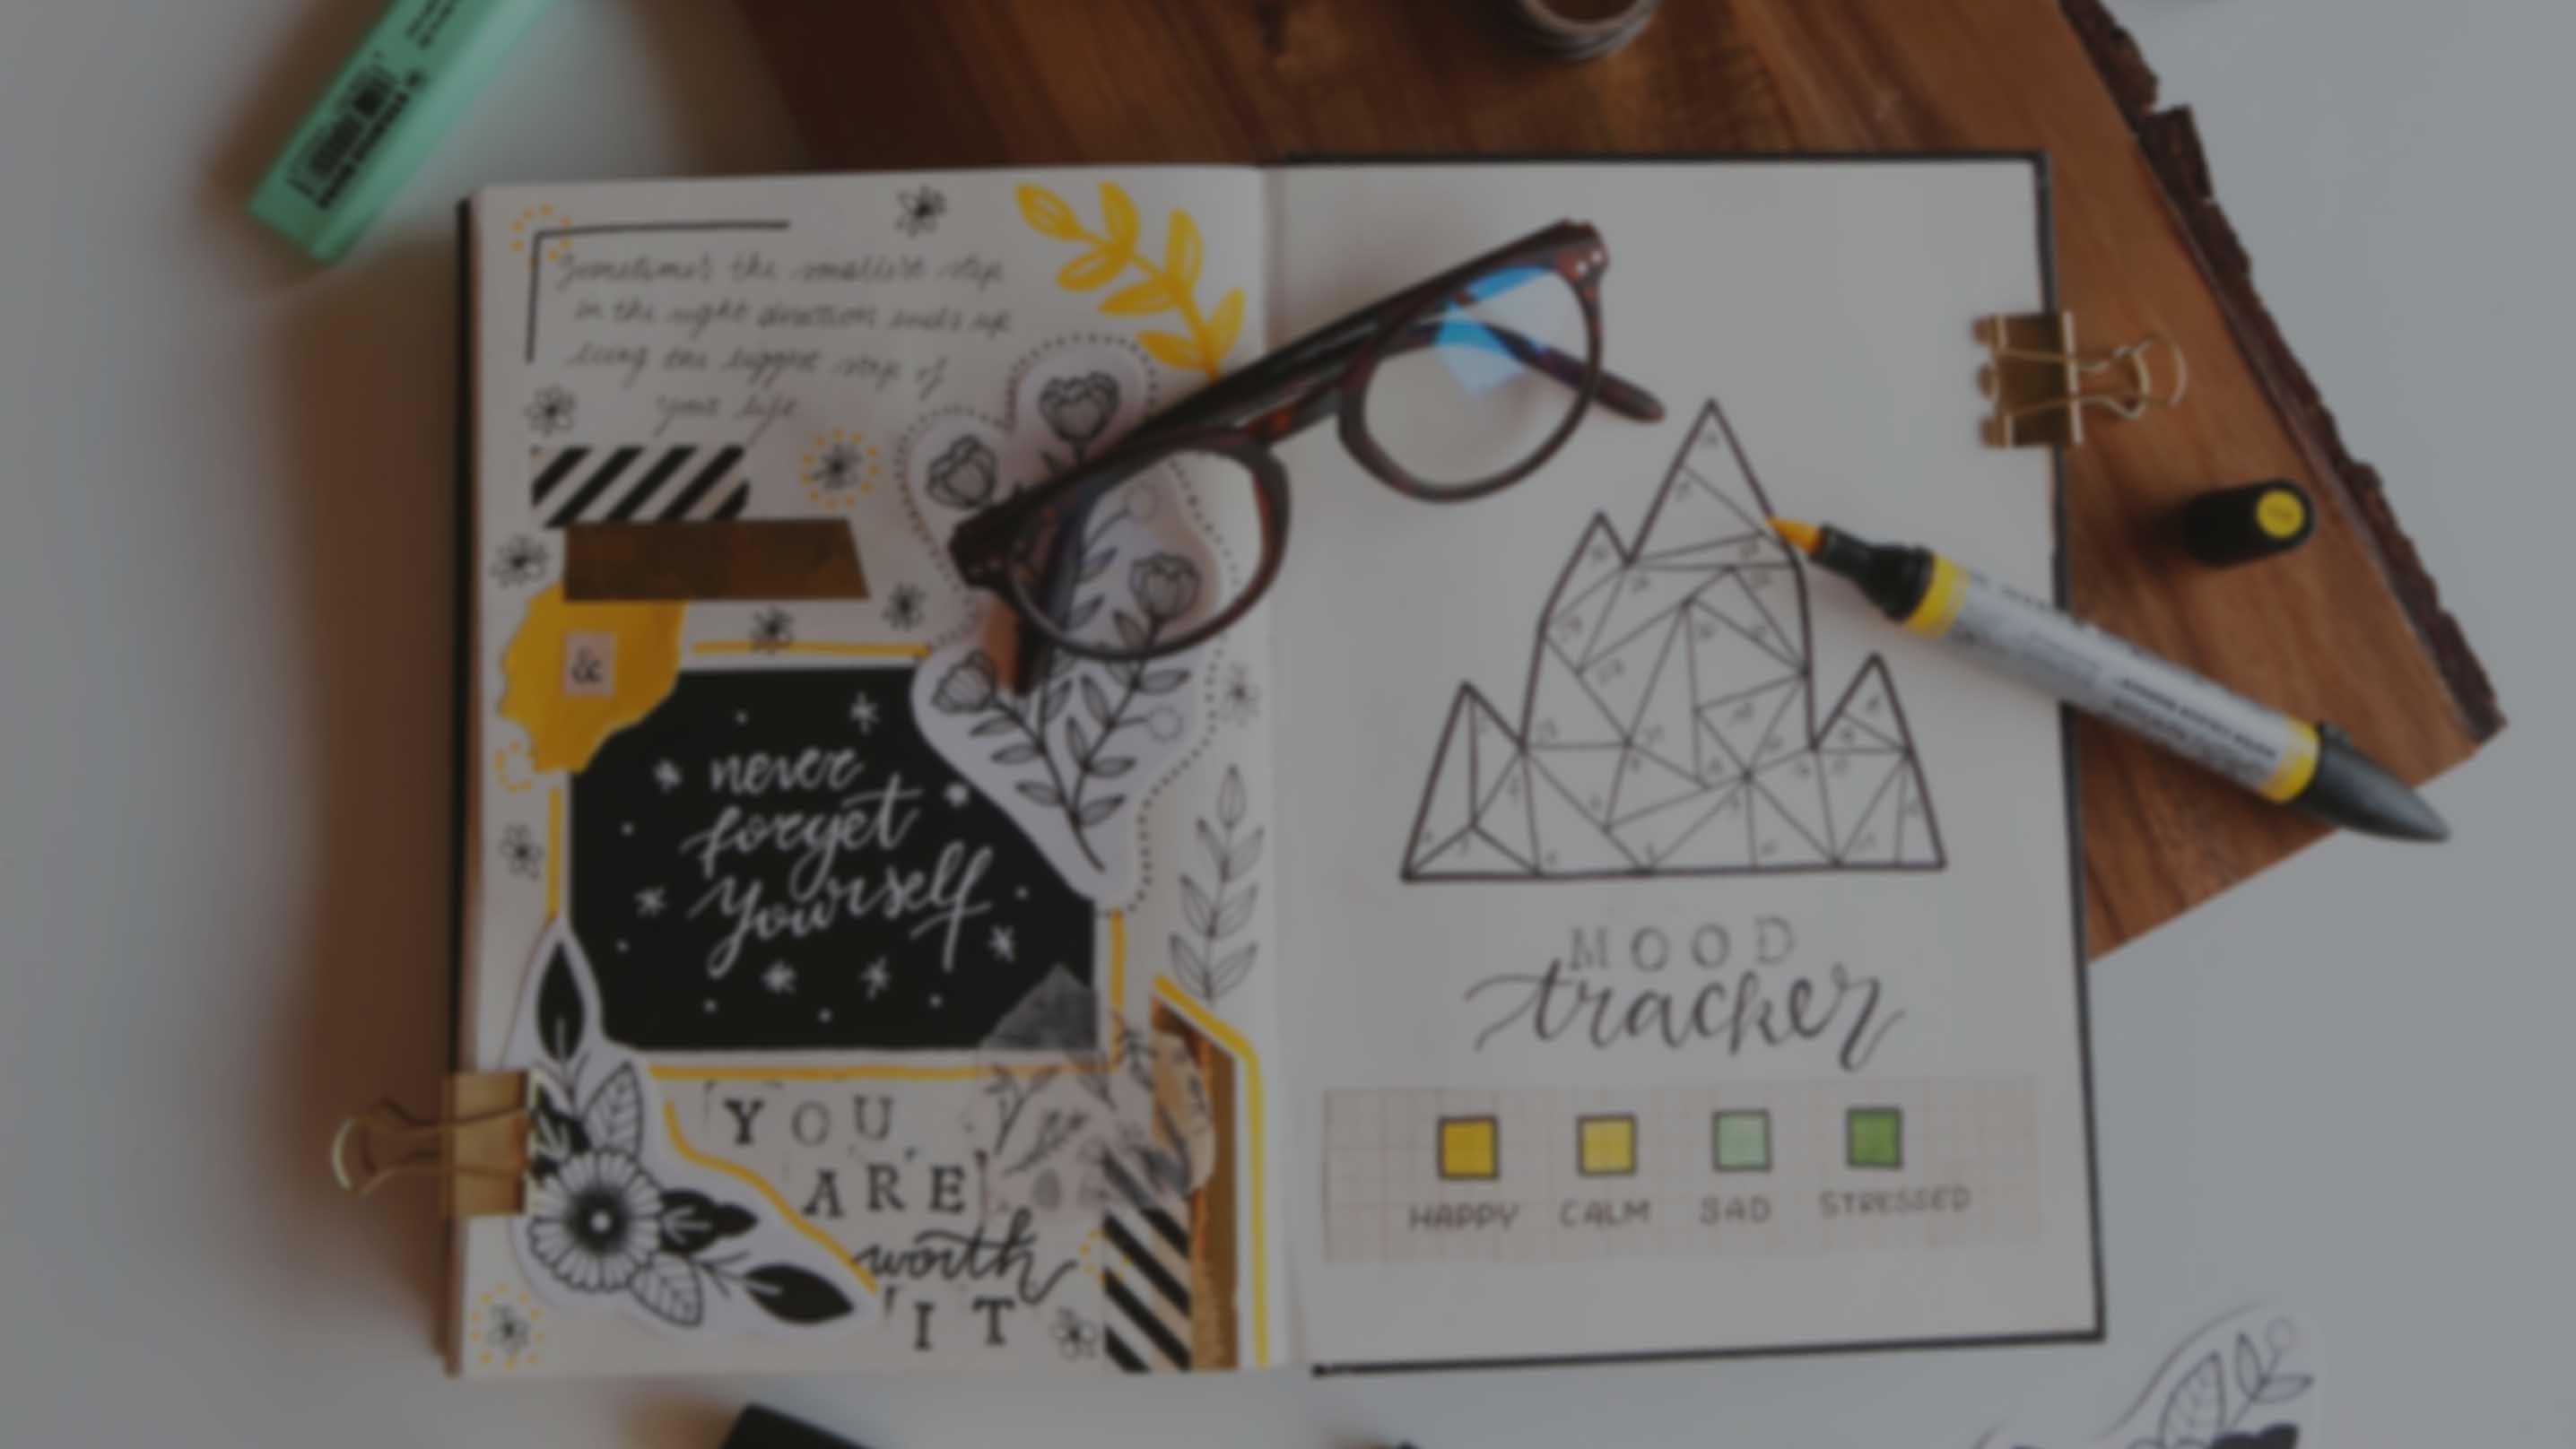 Sometimes the smallest step
in the right direction ends up
being the biggest step of
your life
&
never
forget
yourself
YOU
ARE
worth
IT
MOOD
tracker
HAPPY CALM SAD STRESSED